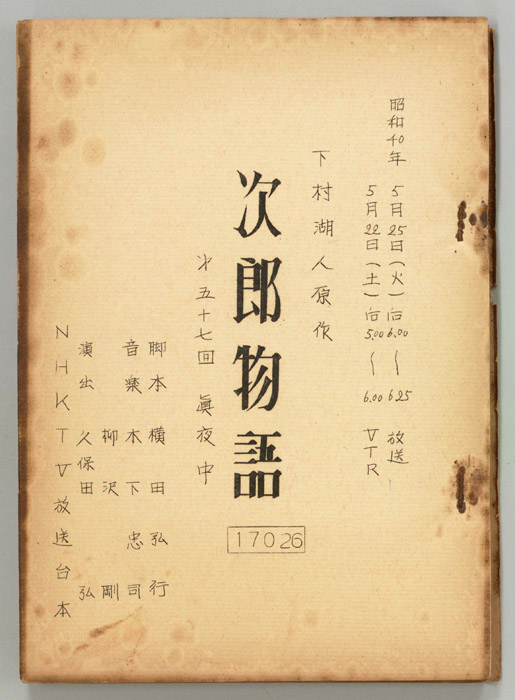 昭和40年 5月25日(火)后6.00〜6.25 放送
5月22日(土)后5.00〜6.00 VTR
下村湖人原作
次郎物語
17026
才五十七回 眞夜中
脚本 横田弘行
音楽 木下忠司
演出 柳沢剛
久保田弘
NHKTV放送台本